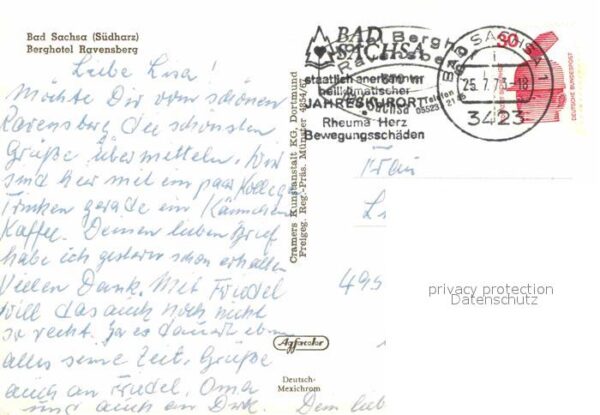 Bad Sachsa (Südharz)
Berghotel Ravensberg
Liebe Lisa!
Möchte Dir vom schönen
Ravensberg die schönsten
Grüße übermitteln. Wir
sind hier mit ein paar Kolleg
Trinken gerade ein Kännchen
Kaffee. Deinen lieben Brief
habe ich gestern schon erhalten
Vielen Dank. Mit Friedel
will das auch noch nicht
so recht. Ja es dauert eben
alles seine Zeit. Grüße
auch an Friedel, Oma
und auch an Dirk. Dem lieb
Cramers Kunstanstalt KG, Dortmund
Freigeg. Reg.-Präs. Münster 4854/67
Agfacolor
Deutsch-
Mexichrom
BAD
SACHSA
staatlich anerkannter
heilklimatischer
JAHRESKURORT
Rheuma Herz
Bewegungsschäden
Berghotel
Ravensberg
Telefon
05523
BAD SACHSA 1
25.7.73-18
3423
30
DEUTSCHE BUNDESPOST
Frau
L
495
privacy protection
Datenschutz